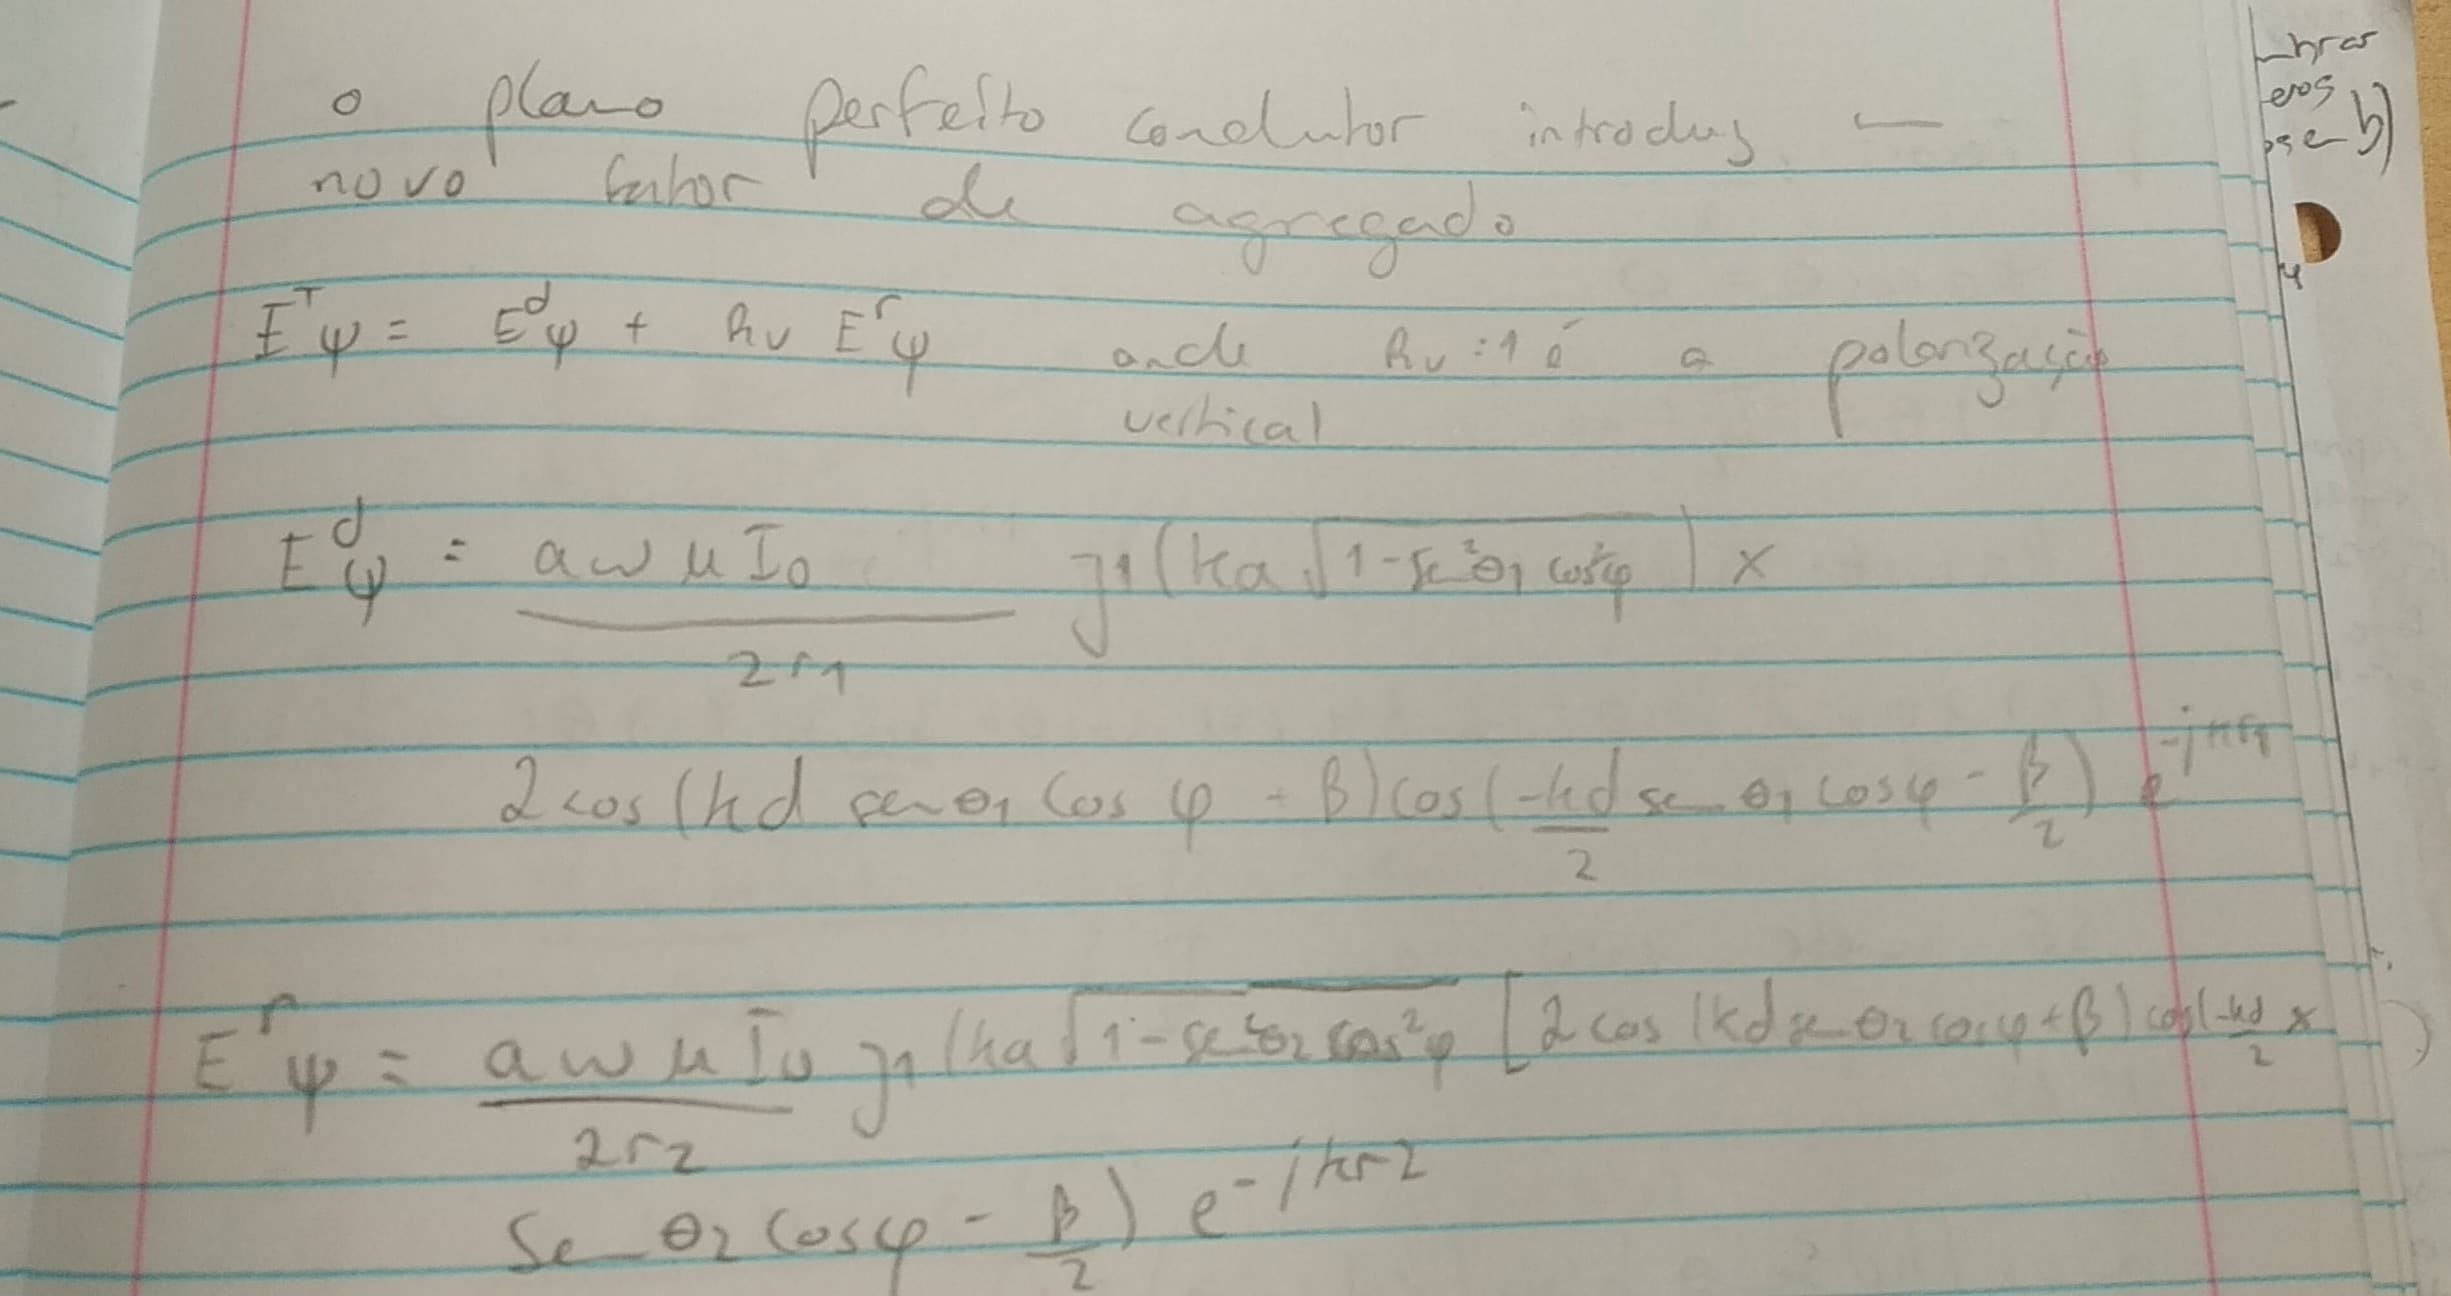 o plano perfeito condutor introduz um
novo fator de agregado
E^T ψ = E^d ψ + Rv E^r ψ onde Rv = 1 é a polarização
vertical
E^d ψ = a w μ I0 / 2 r1 J1 (ka √(1 - sen²θ1 cos²φ)) ×
2 cos (kd sen θ1 cos φ + β) cos (-kd/2 sen θ1 cos φ - β/2) e^-jkr1
E^r ψ = a w μ I0 / 2 r2 J1 (ka √(1 - sen²θ2 cos²φ) [2 cos (kd sen θ2 cos φ + β) cos (-kd/2 ×
sen θ2 cos φ - β/2) e^-jkr2
b)